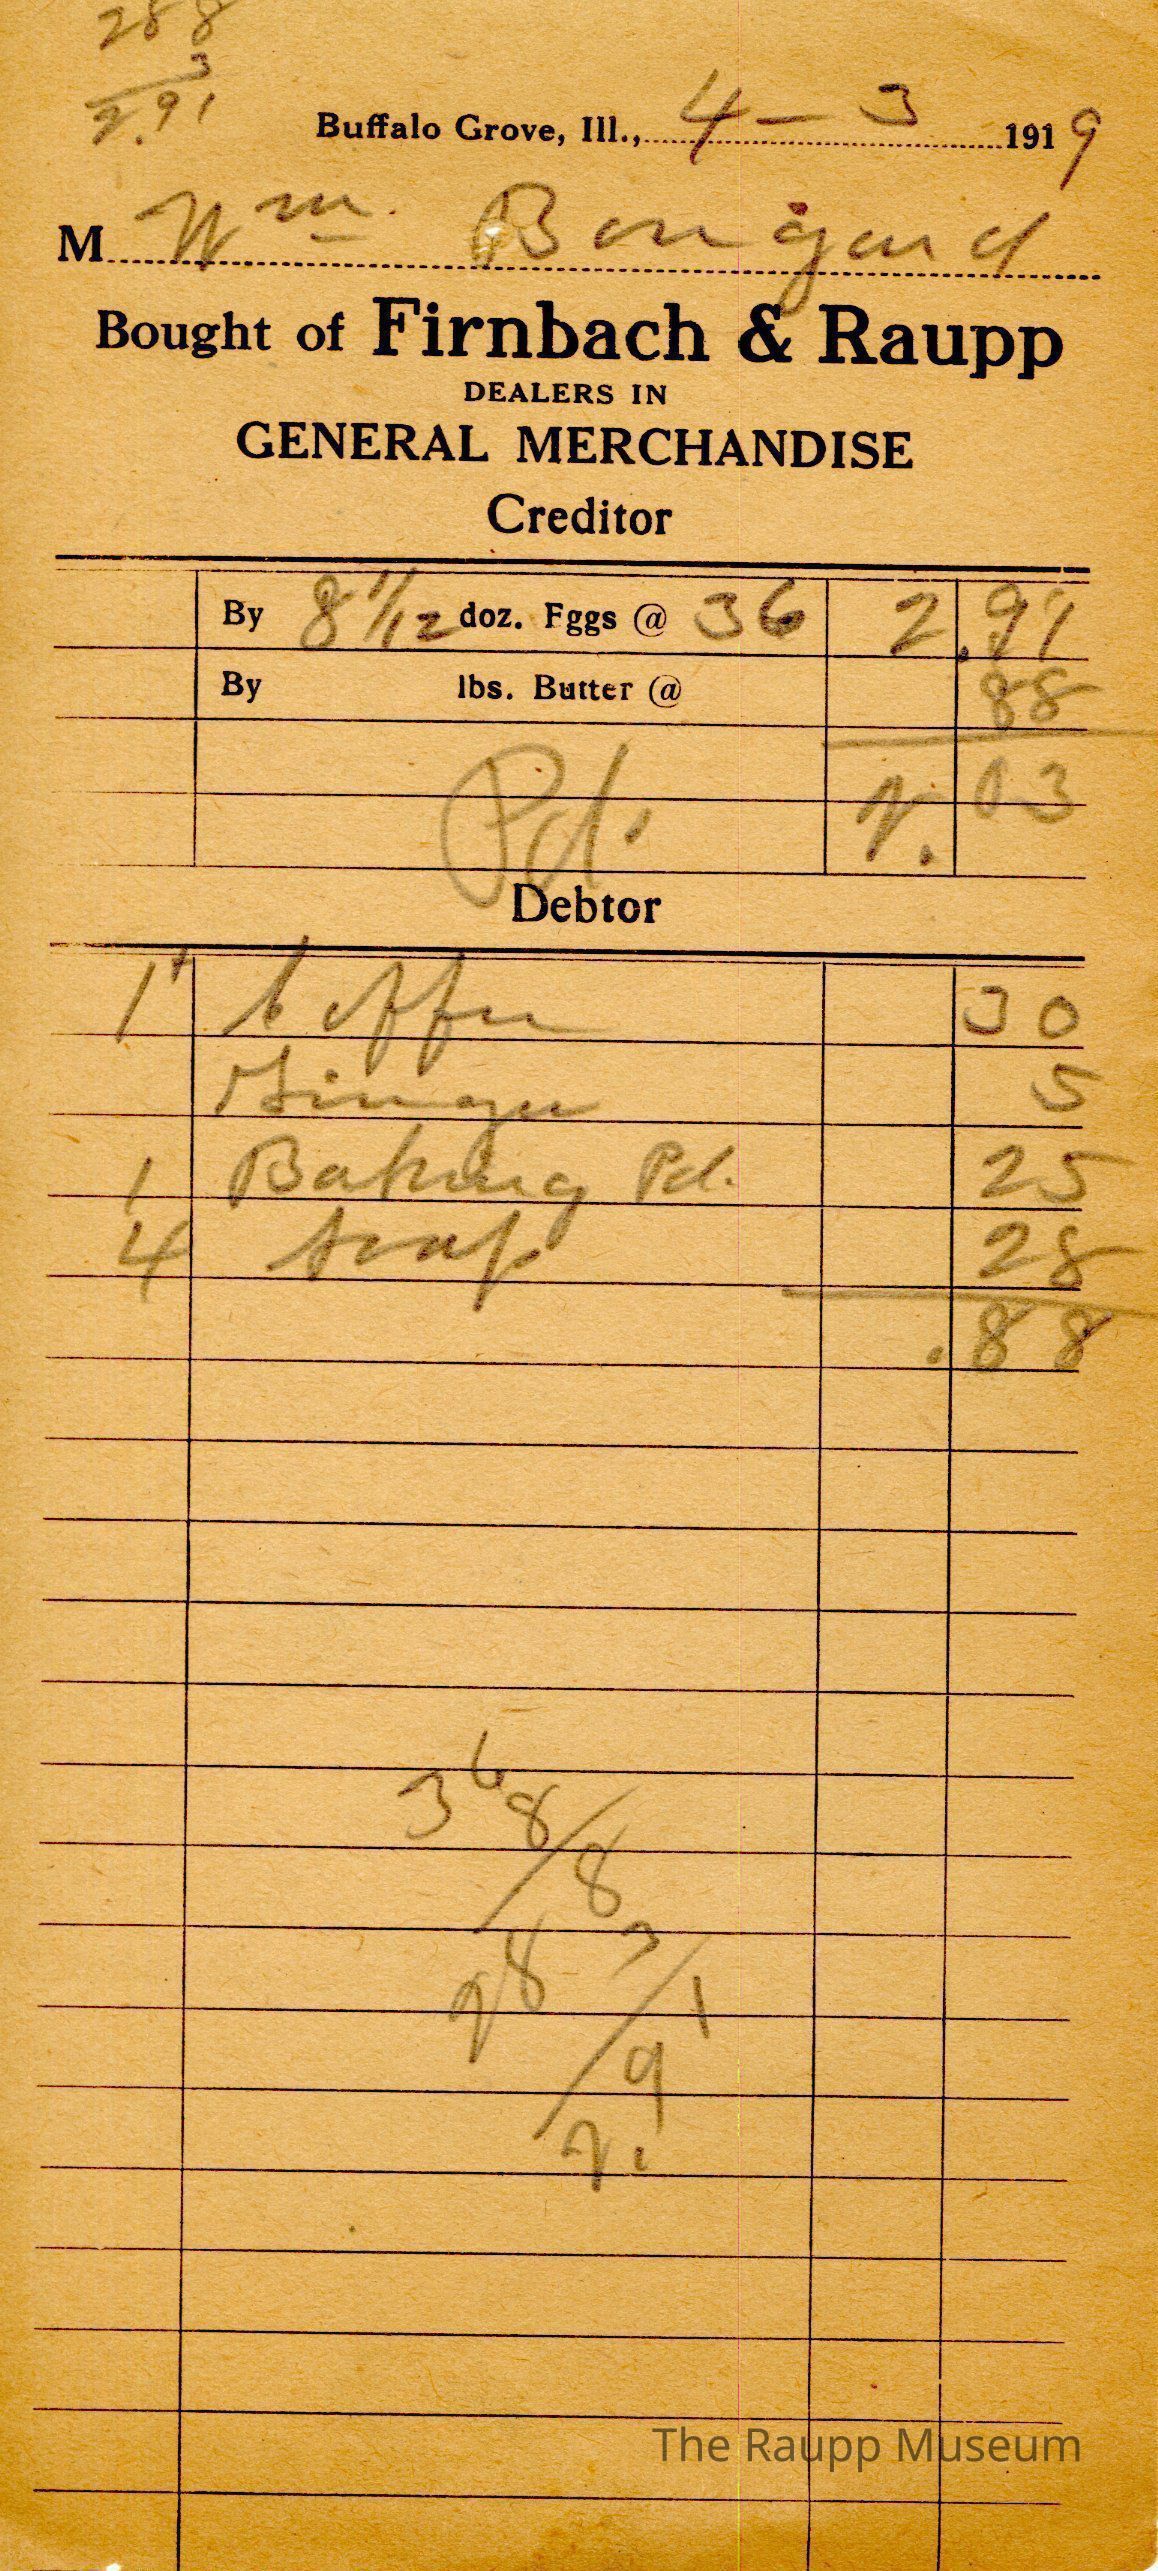 288
3
2.91
Buffalo Grove, Ill., 4 - 3 1919
M Wm. Bongard
Bought of Firnbach & Raupp
DEALERS IN
GENERAL MERCHANDISE
Creditor
By 8 1/12 doz. Fggs @ 36 2.91
By lbs. Butter @ 88
2.03
Pd.
Debtor
1# Coffee 30
Ginger 5
1 Baking Pd. 25
4 Soap 28
.88
36
8/8
28 3/1
/9
2.
The Raupp Museum